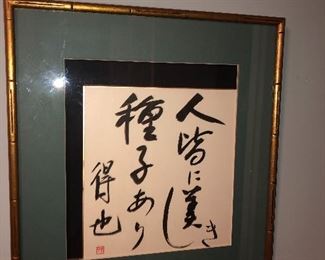 人皆に美しき
種子あり
得也